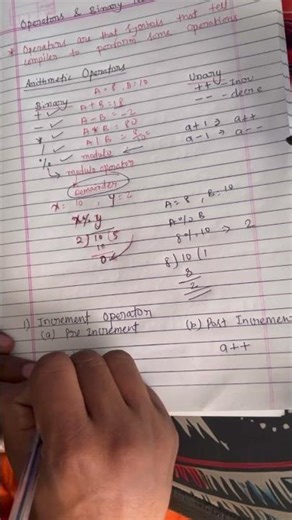 Operators & Binary
* Operators are that symbols that tell
compiler to perform some operations
Arithmetic Operators
A = 8, B = 10
Binary
+ ✓ A + B = 18
- ✓ A - B = -2
* ✓ A * B = 80
/ ✓ A / B =
% ✓ modulo
↳ modulo operator
Remainder
Unary
++ - Incre
-- - decre
a+1 → a++
a-1 → a--
x = 10, y = 2
x % y
2) 10 (5
10
0
A = 8, B = 10
A % B
8 % 10 → 2
8) 10 (1
8
2
1) Increment Operator
(a) Pre Increment
(b) Post Increment
a++